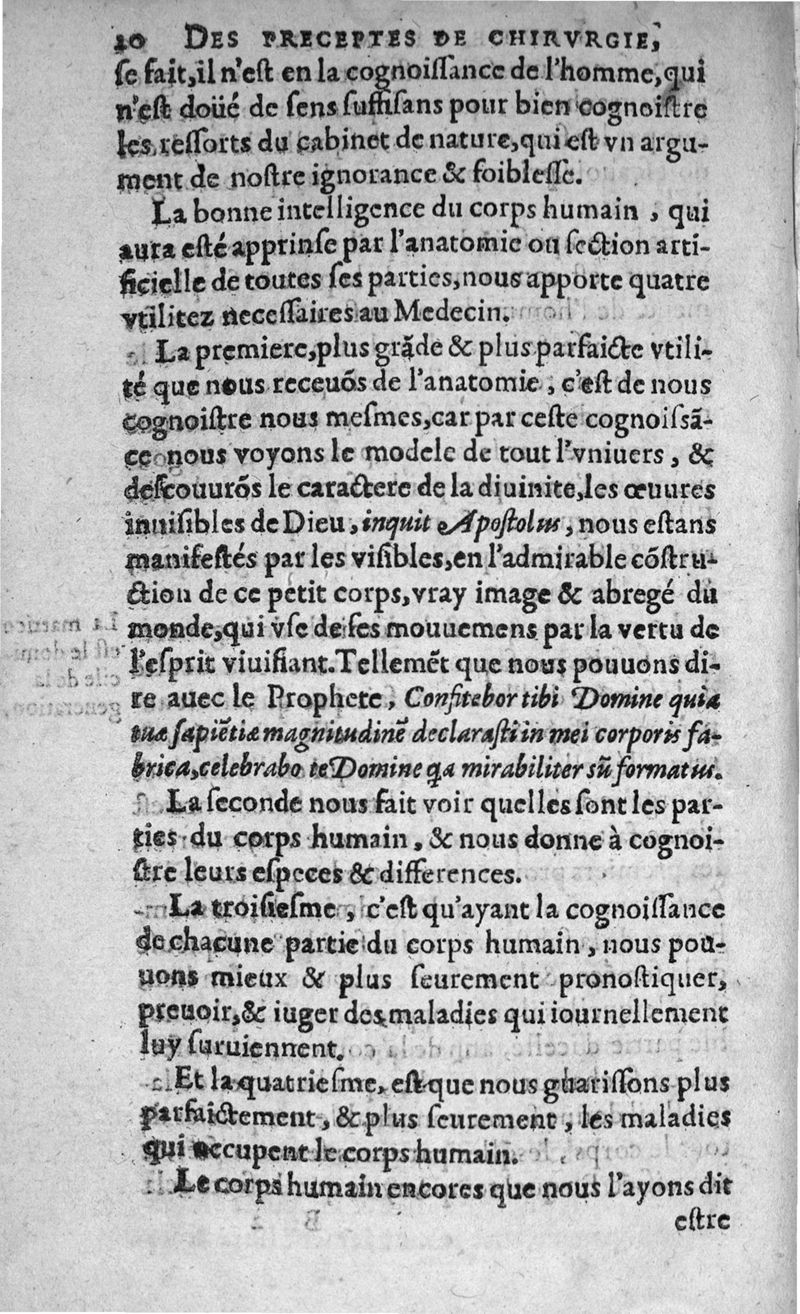 20 DES PRECEPTES DE CHIRVRGIE,
ſe fait, il n'eſt en la cognoiſſance de l'homme, qui
n'eſt doüé de ſens ſuffiſans pour bien cognoiſtre
les reſſorts du cabinet de nature, qui eſt vn argu-
ment de noſtre ignorance & foibleſſe.
La bonne intelligence du corps humain, qui
aura eſté apprinſe par l'anatomie ou ſection arti-
ficielle de toutes ſes parties, nous apporte quatre
vtilitez neceſſaires au Medecin.
La premiere, plus grāde & plus parfaicte vtili-
té que nous receuōs de l'anatomie, c'eſt de nous
cognoiſtre nous meſmes, car par ceſte cognoiſsā-
ce nous voyons le modele de tout l'vniuers, &
deſcouurōs le caractere de la diuinite, les œuures
inuiſibles de Dieu, inquit Apoſtolus, nous eſtans
manifeſtés par les viſibles, en l'admirable cōſtru-
ction de ce petit corps, vray image & abregé du
monde, qui vſe de ſes mouuemens par la vertu de
l'eſprit viuifiant. Tellemēt que nous pouuons di-
re auec le Prophete, Confitebor tibi Domine quia
tuæ ſapiētiæ magnitudinē declaraſti in mei corporis fa-
brica, celebrabo te Domine qa mirabiliter sū formatus.
La ſeconde nous fait voir quelles ſont les par-
ties du corps humain, & nous donne à cognoi-
ſtre leurs eſpeces & differences.
La troiſieſme, c'eſt qu'ayant la cognoiſſance
de chacune partie du corps humain, nous pou-
uons mieux & plus ſeurement pronoſtiquer,
preuoir, & iuger des maladies qui iournellement
luy ſuruiennent.
Et la quatrieſme, eſt que nous guariſſons plus
parfaictement, & plus ſeurement, les maladies
qui occupent le corps humain.
Le corps humain encores que nous l'ayons dit
eſtre